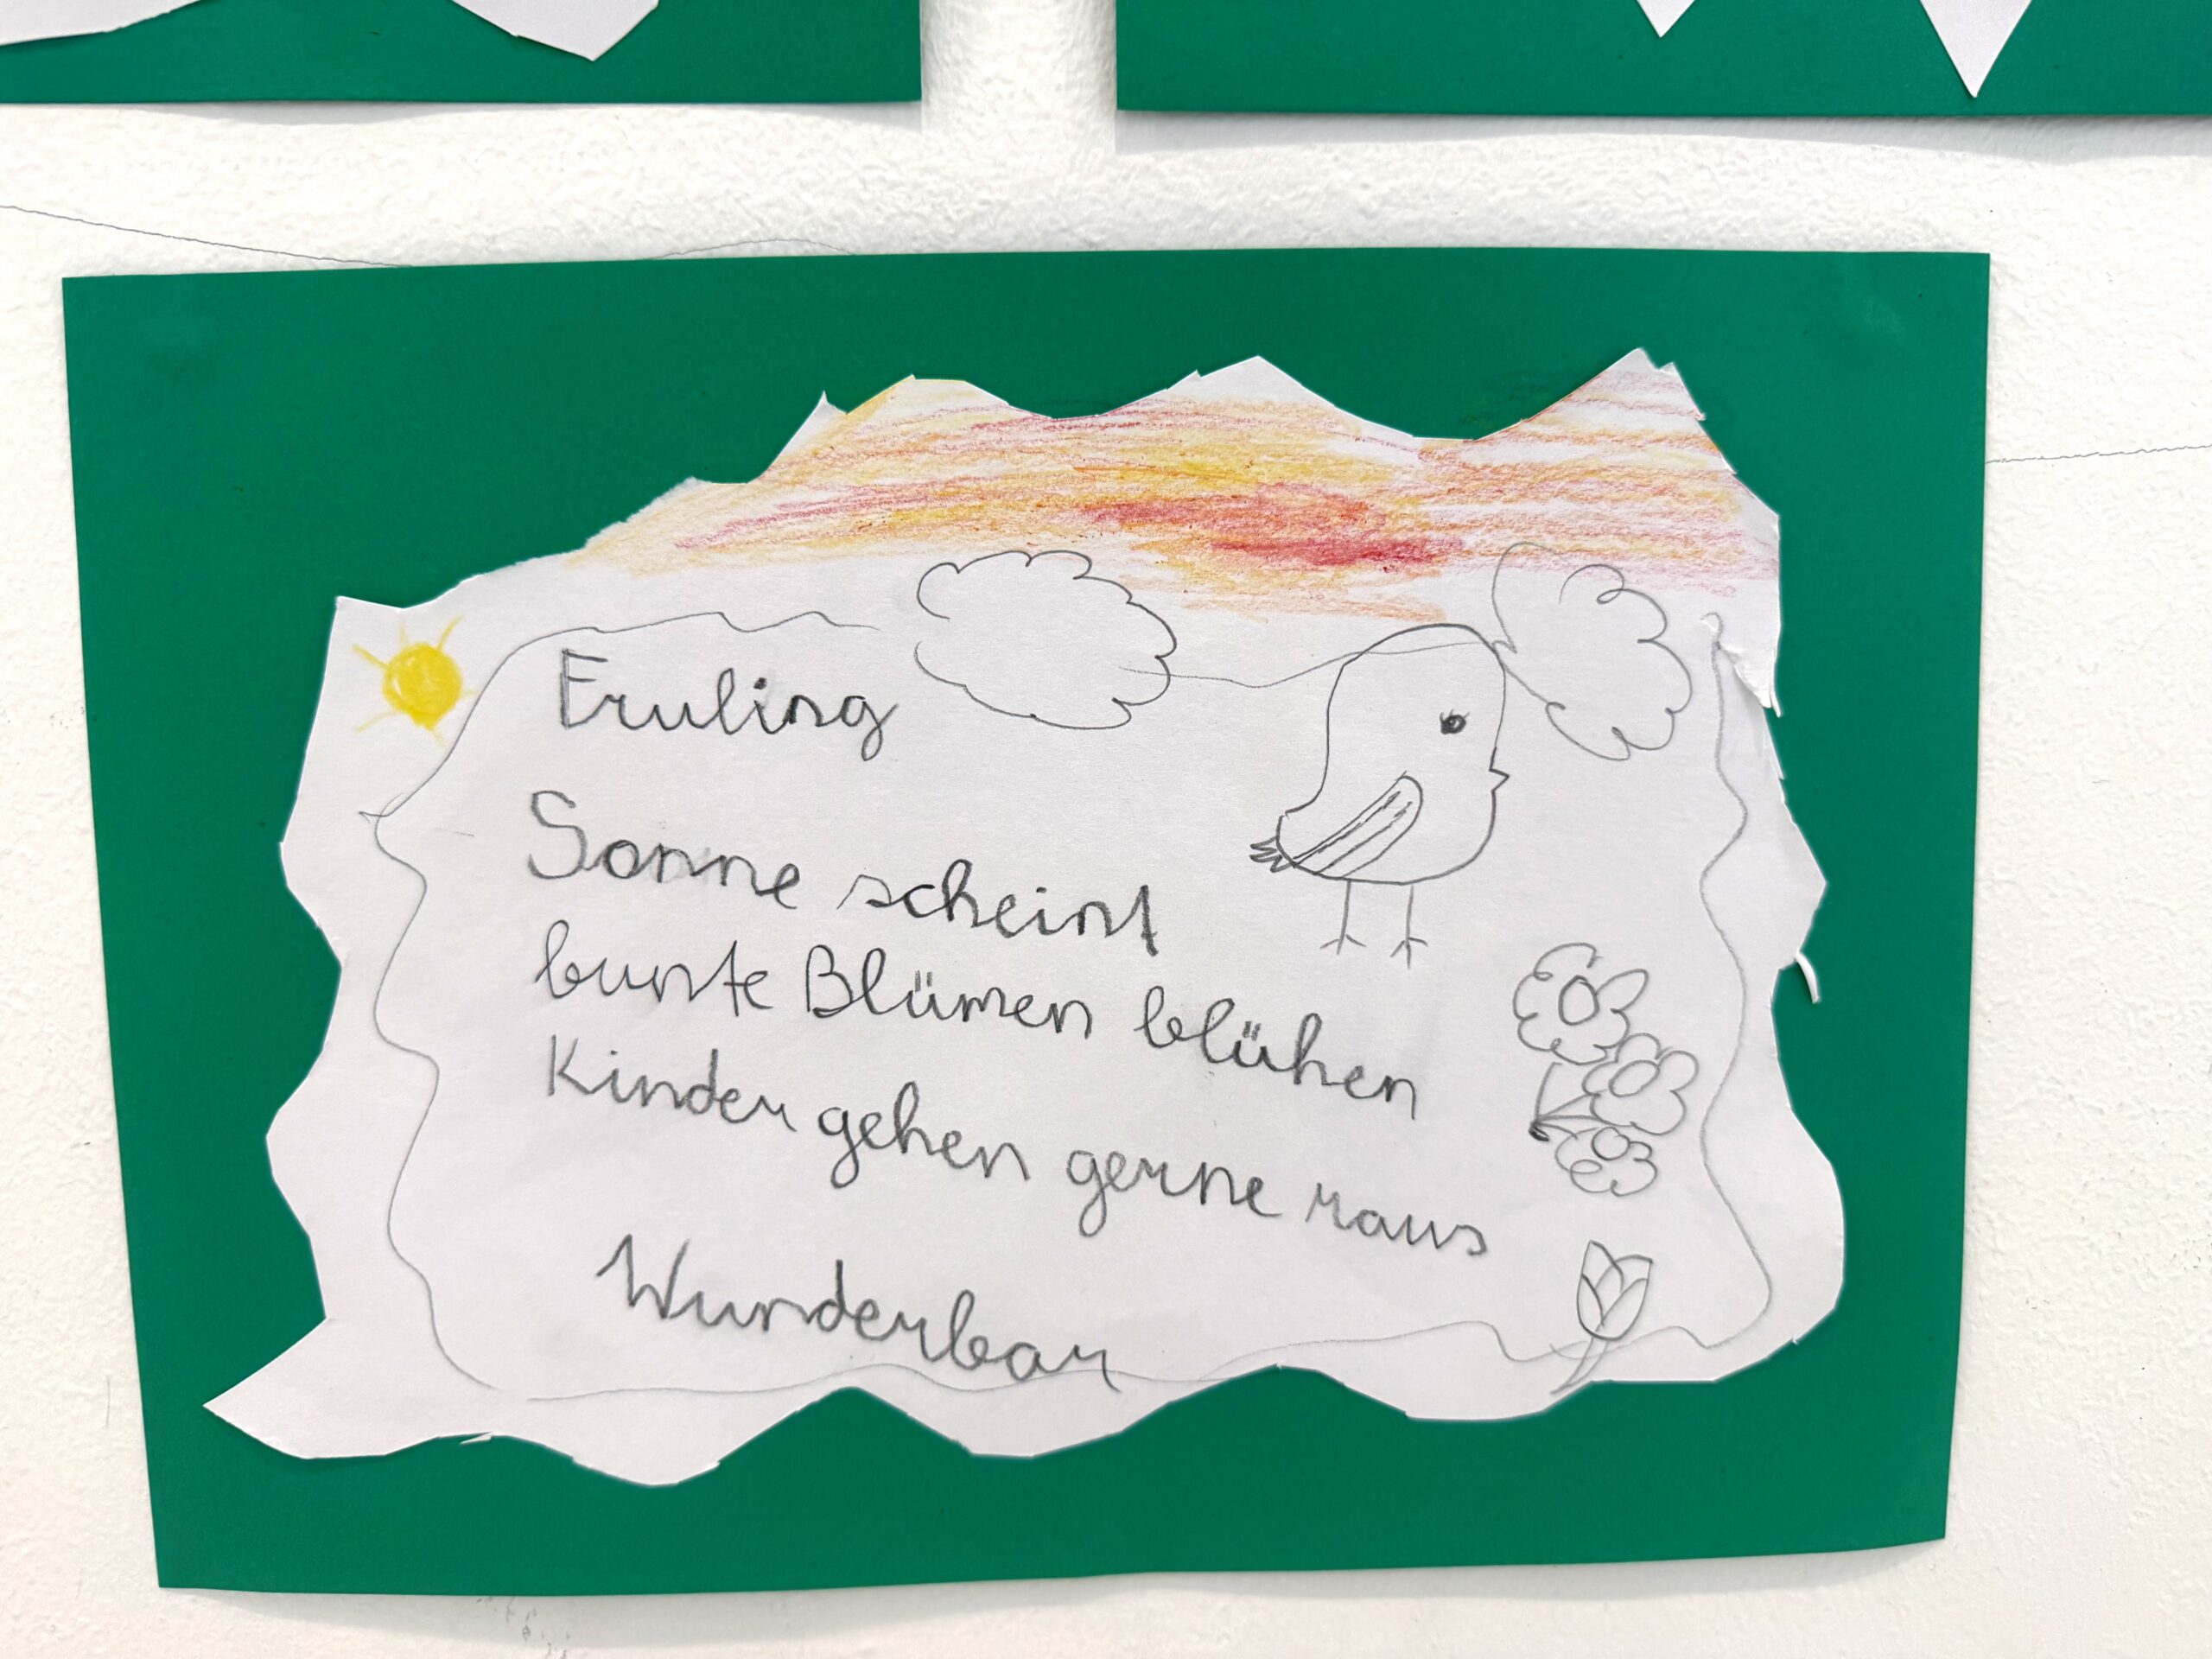 Fruling
Sonne scheint
bunte Blümen blühen
Kinder gehen gerne raus
Wunderbar